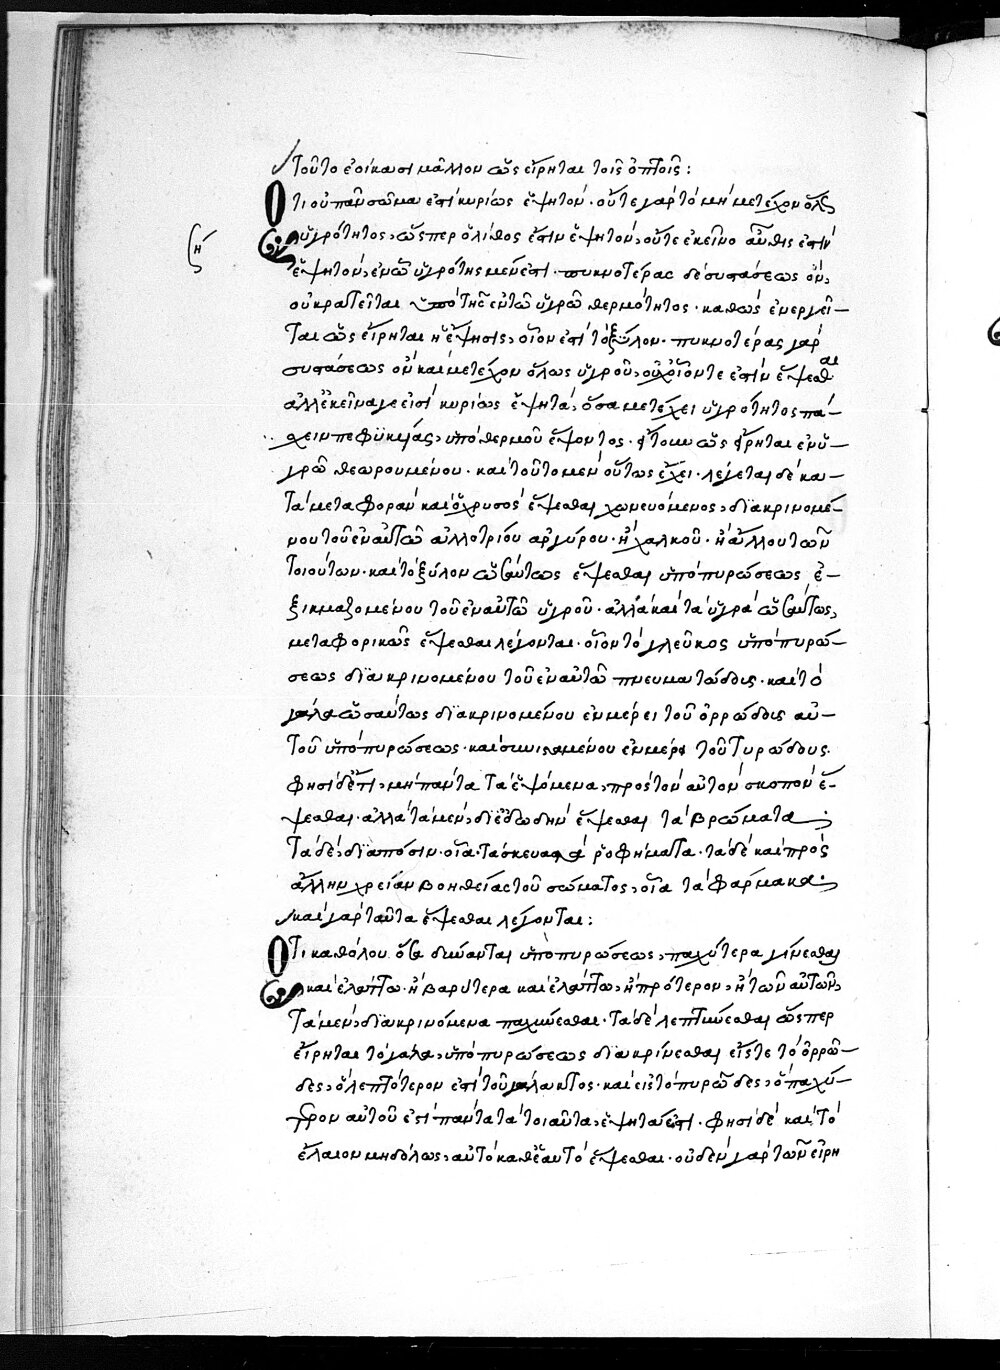 τοῦτο ἐοίκασι μᾶλλον ὡς εἴρηται τοῖς ὀπτοῖς:
Ὅτι οὐ πᾶν σῶμα ἐστὶ κυρίως ἑψητόν· οὔτε γὰρ τὸ μὴ μετέχον ὅλως
ὑγρότητος, ὥσπερ ὁ λίθος ἐστὶν ἑψητόν, οὔτε ἐκεῖνο αὖθις ἐστὶν
ἑψητόν, ἐν ᾧ ὑγρότης μέν ἐστι· πυκνοτέρας δὲ συστάσεως ὄν,
οὐ κρατεῖται ὑπὸ τῆς ἐν τῷ ὑγρῷ θερμότητος· καθὼς ἐνεργεῖ-
ται ὡς εἴρηται ἡ ἕψησις, οἷον ἐπὶ τὸ ξύλον· πυκνοτέρας γὰρ
συστάσεως ὂν καὶ μετέχον ὅλως ὑγροῦ, οὐχ οἷόν τε ἐστὶν ἕψεσθαι
ἀλλ' ἐκεῖνά γε εἰσὶ κυρίως ἑψητά, ὅσα μετέχει ὑγρότητος πά-
σχειν πεφυκυίας, ὑπὸ θερμοῦ ἕψοντος· ἤτοι ὡς εἴρηται ἐν ὑ-
γρῷ θεωρουμένου· καὶ τοῦτο μὲν οὕτως ἔχει· λέγεται δὲ κα-
τὰ μεταφορὰν καὶ ὁ χρυσὸς ἕψεσθαι χωνευόμενος, διακρινομέ-
νου τοῦ ἐν αὐτῷ ἀλλοτρίου ἀργύρου· ἢ χαλκοῦ· ἢ ἄλλου τῶν
τοιούτων· καὶ τὸ ξύλον ὡσαύτως ἕψεσθαι ὑπὸ πυρώσεως, ἐ-
ξικμαζομένου τοῦ ἐν αὐτῷ ὑγροῦ· ἀλλὰ καὶ τὰ ὑγρὰ ὡσαύτως,
μεταφορικῶς ἕψεσθαι λέγονται· οἷον τὸ γλεῦκος ὑπὸ πυρώ-
σεως διακρινομένου τοῦ ἐν αὐτῷ πνευματώδους· καὶ τὸ
γάλα ὡσαύτως διακρινομένου ἐν μέρει τοῦ ὀρρώδους αὐ-
τοῦ ὑπὸ πυρώσεως· καὶ συνισταμένου ἐν μέρει τοῦ τυρώδους.
φησὶ δ' ἔτι, μὴ πάντα τὰ ἑψόμενα, πρὸς τὸν αὐτὸν σκοπὸν ἕ-
ψεσθαι· ἀλλὰ τὰ μὲν, δι' ἐδωδὴν ἕψεσθαι τὰ βρώματα
τὰ δὲ, διὰ πόσιν· οἷα τὰ σκευαστὰ ῥοφήματα· τὰ δὲ καὶ πρὸς
ἄλλην χρείαν βοηθείας τοῦ σώματος, οἷα τὰ φάρμακα·
καὶ γὰρ ταῦτα ἕψεσθαι λέγονται:
Ὅτι καθόλου ὅσα δύνανται ὑπὸ πυρώσεως, παχύτερα γίνεσθαι
καὶ ἐλάττω· ἢ βαρύτερα καὶ ἐλάττω, ἢ πρότερον, ἢ τῶν αὐτῶν,
τὰ μὲν, διακρινόμενα παχύνεσθαι· τὰ δὲ λεπτύνεσθαι ὥσπερ
εἴρηται τὸ γάλα, ὑπὸ πυρώσεως διακρίνεσθαι εἴς τε τὸ ὀρρῶ-
δες, ὃ λεπτότερον ἐστὶ τοῦ γάλακτος· καὶ εἰς τὸ τυρῶδες, ὃ παχύ-
τερον αὐτοῦ ἐστὶ πάντα τὰ τοιαῦτα, ἑψητά ἐστι· φησὶ δὲ καὶ τὸ
ἔλαιον μηδόλως, αὐτὸ καθ' ἑαυτὸ ἕψεσθαι· οὐδὲν γὰρ τῶν εἰρη